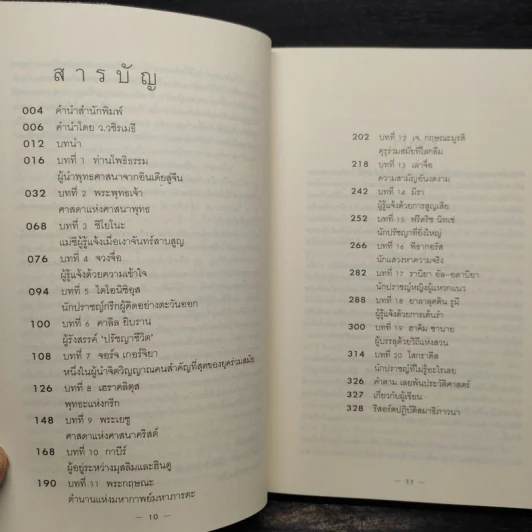 สารบัญ
004 คำนำสำนักพิมพ์
006 คำนำโดย ว.วชิรเมธี
012 บทนำ
016 บทที่ 1 ท่านโพธิธรรม
ผู้นำพุทธศาสนาจากอินเดียสู่จีน
032 บทที่ 2 พระพุทธเจ้า
ศาสดาแห่งศาสนาพุทธ
068 บทที่ 3 ชิโยโนะ
แม่ชีผู้รู้แจ้งเมื่อเงาจันทร์สาบสูญ
076 บทที่ 4 จวงจื่อ
ผู้รู้แจ้งด้วยความเข้าใจ
094 บทที่ 5 ไดโอนิซิอุส
นักปราชญ์กรีกผู้คิดอย่างตะวันออก
100 บทที่ 6 คาลิล ยิบราน
ผู้รังสรรค์ 'ปรัชญาชีวิต'
108 บทที่ 7 จอร์จ เกอร์จิยา
หนึ่งในผู้นำจิตวิญญาณคนสำคัญที่สุดของยุคร่วมสมัย
126 บทที่ 8 เฮราคลิตุส
พุทธะแห่งกรีก
148 บทที่ 9 พระเยซู
ศาสดาแห่งศาสนาคริสต์
168 บทที่ 10 กาบีร์
ผู้อยู่ระหว่างมุสลิมและฮินดู
190 บทที่ 11 พระกฤษณะ
ตำนานแห่งมหากาพย์มหาภารตะ
— 10 —
202 บทที่ 12 เจ. กฤษณะมูรติ
คุรุร่วมสมัยที่โลกลืม
218 บทที่ 13 เลาจื่อ
ความสามัญอันงดงาม
242 บทที่ 14 มีรา
ผู้รู้แจ้งด้วยการสูญเสีย
252 บทที่ 15 ฟรีดริช นิทเช่
นักปรัชญาที่ยิ่งใหญ่
266 บทที่ 16 พีธากอรัส
นักแสวงหาความจริง
282 บทที่ 17 ราบิยา อัล-อดาบิยา
นักปราชญ์หญิงผู้แหวกแนว
288 บทที่ 18 ยาลาลุดดิน รูมี
ผู้รู้แจ้งด้วยการเต้นรำ
300 บทที่ 19 ฮาคิม ซานาย
ผู้บรรลุด้วยวิถีแห่งสวน
314 บทที่ 20 โสกราตีส
นักปราชญ์ที่ไม่รู้อะไรเลย
326 คำตาม เลยพ้นประวัติศาสตร์
327 เกี่ยวกับผู้เขียน
328 รีสอร์ตปฏิบัติสมาธิภาวนา
— 11 —